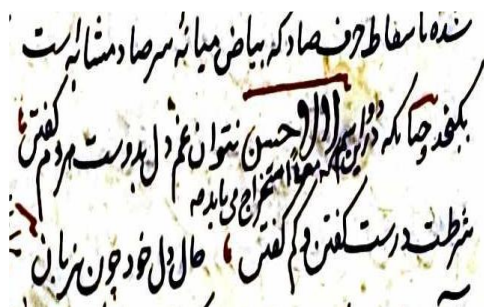 شده باسقاط حرف صاد که بیاض میانه سر صاد مشابه است
بکنجد و چنانکه در این دو اسم حسن نتوان غم دل بدوست هر دم گفتن
که معا استخراج می یابد
شرطست درست گفتن و کم گفتن حال دل خود چون بزبان